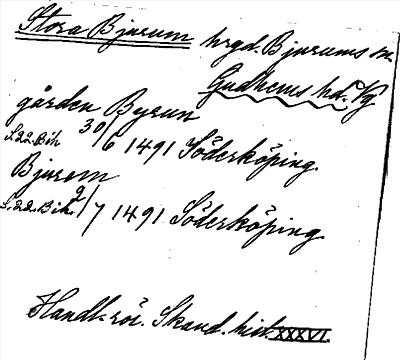 Stora Bjurum hrgd. Bjurums sn.
Gudhems hd. Vg
gården Byrun
S. 22. Bih 30/6 1491 Söderköping.
Bjurom
S. 22. Bih. 9/7 1491 Söderköping
Handl. rör. Skand. hist. XXXVI.